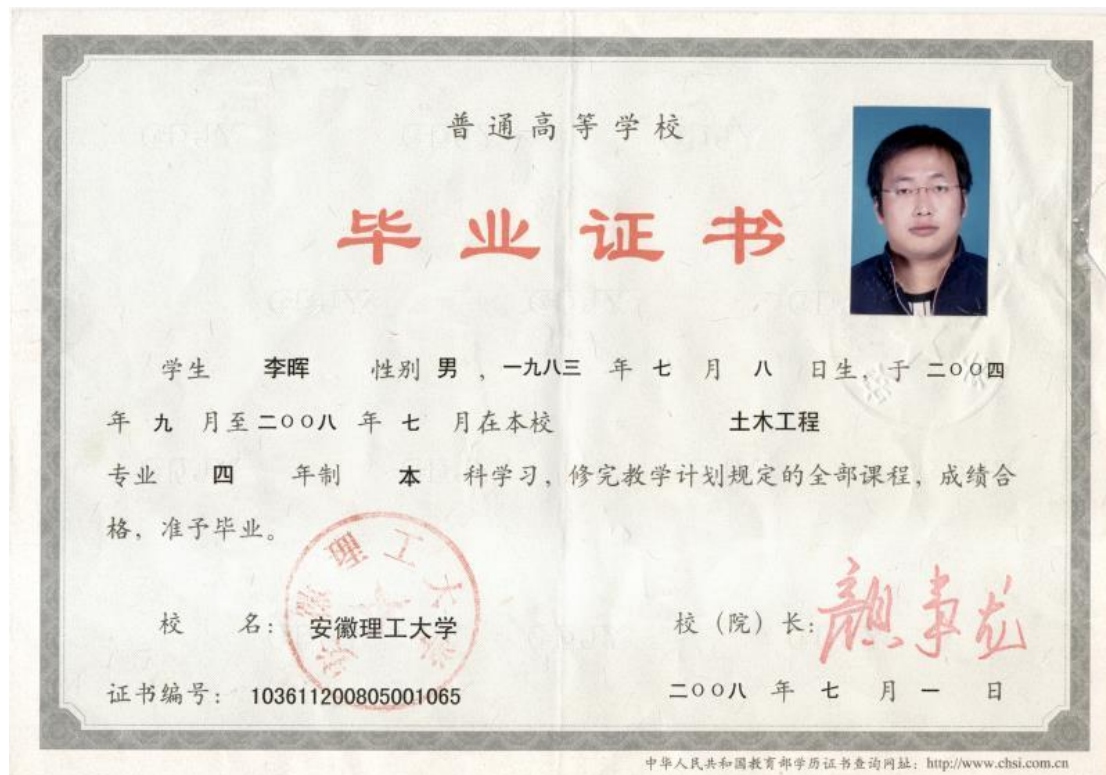 普通高等学校
毕业证书
学生 李晖 性别 男 ，一九八三 年 七 月 八 日生，于 二○○四
年 九 月至 二○○八 年 七 月在本校 土木工程
专业 四 年制 本 科学习，修完教学计划规定的全部课程，成绩合
格，准予毕业。
安徽理工大学
校 名： 安徽理工大学 校（院）长：
证书编号： 103611200805001065 二○○八 年 七 月 一 日
中华人民共和国教育部学历证书查询网址：http://www.chsi.com.cn